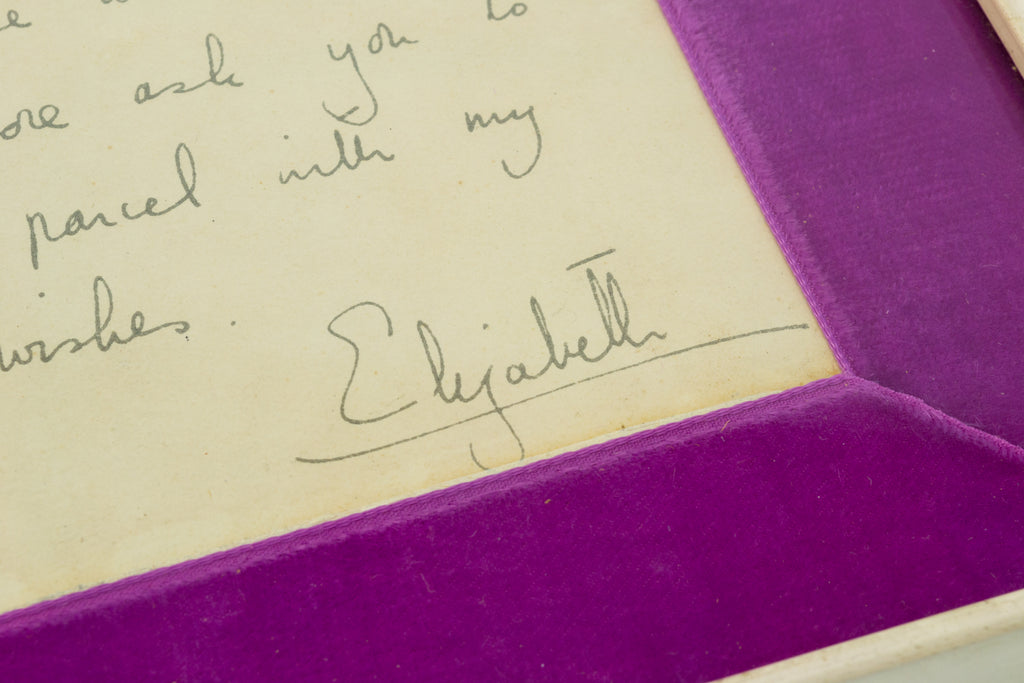 to
ore ask you
parcel with my
wishes.
Elizabeth